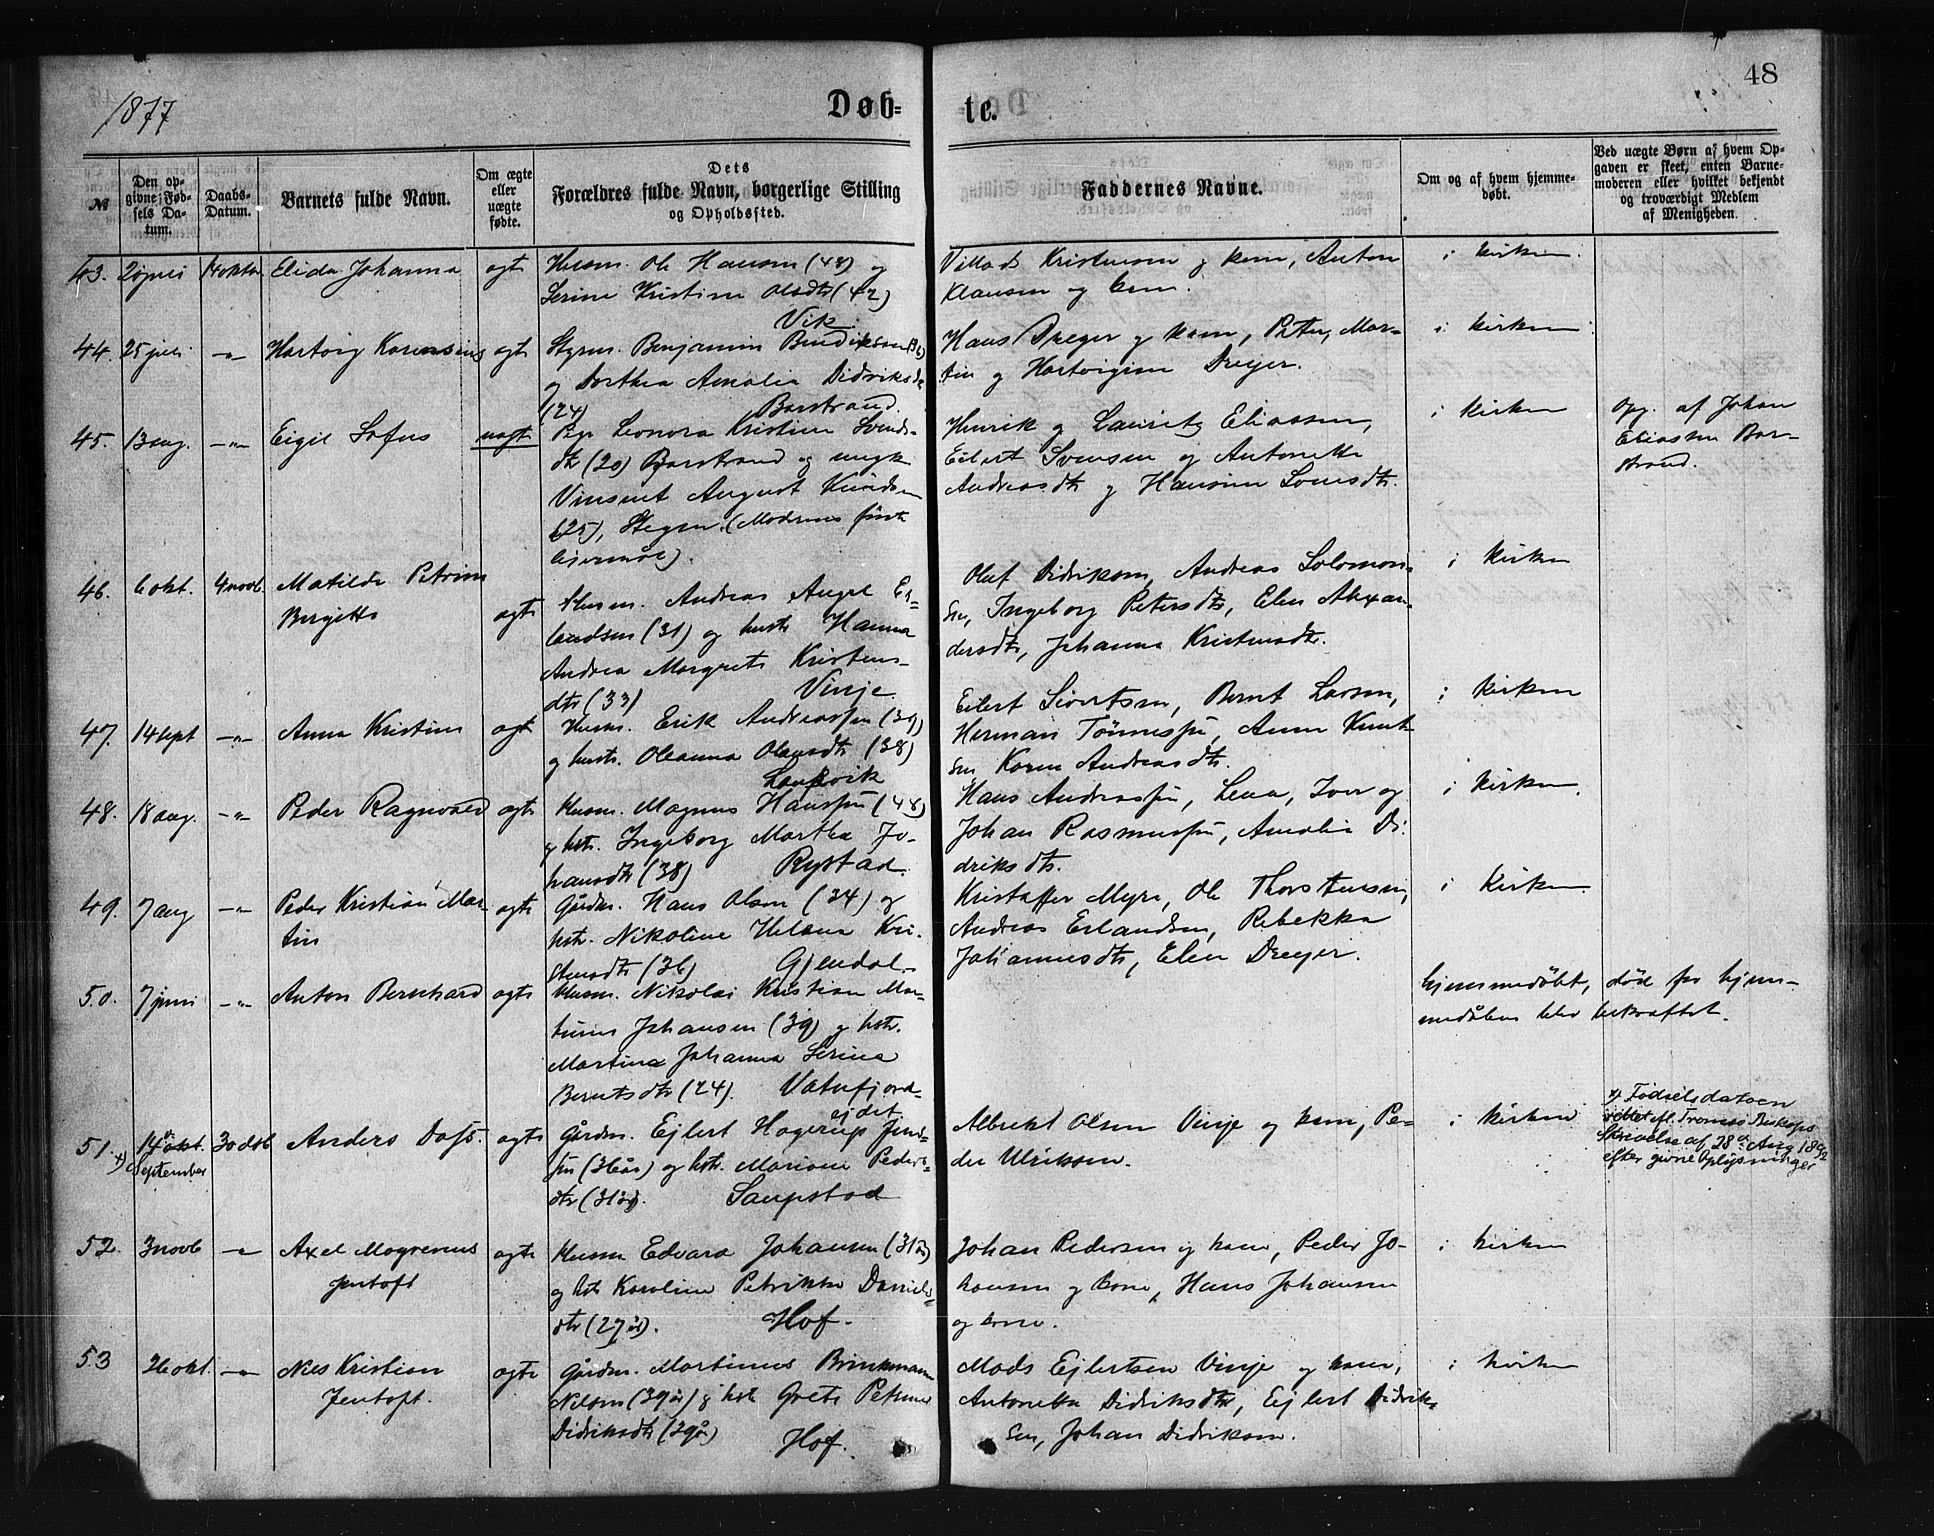 1877
Døb=
te.
48
№
Den op-
givne Fød-
sels Da-
tum.
Daabs-
Datum.
Barnets fulde Navn.
Om ægte
eller
uægte
fødte.
Dets
Forældres fulde Navn, borgerlige Stilling
og Opholdssted.
Faddernes Navne.
Om og af hvem hjemme-
døbt.
Ved uægte Børn af hvem Op-
gaven er skeet, enten Barne-
moderen eller hvilket bekjendt
og troværdigt Medlem
af Menigheden.
43. 14 oktbr Elida Johanna ægte
Husm. Ole Hansen (48) og
Serine Kristine Olsdtr (42)
Vik
Kristensen og kone, Anton
Klausen og kone.
i kirken.
44. 25 juli -"- Hartvig Korensius ægte
Styrm. Benjamin Bendiksen
og Dorthea Amalia Didriksdtr
(24) Borstrand
Hans Dreyer og kone, Peter, Mar-
tin og Hartvigine Dreyer.
i kirken
45. 13 aug. -"- Eigil Sofus uægte
Pige Leonora Kristine Svends-
dtr (20) Borstrand og ungk.
Vinsent August Knudsen
(25), (Modrens første
leiermål).
Henrik og Lauritz Eliassen,
Eilert Svensen og Antonette
Andreasdtr og
i kirken
Opg. af Johan
Eliassen Bor-
strand.
46. 6 okt. 4 novb. Matilde Petrine
Birgitte
ægte
Husm. Andreas Angel Er-
landsen (31) og hustr Hanna
Andrea Margrete Kristens-
dtr (33) Vinje
Oluf Didriksen, Andreas Solomon-
sen, Ingeborg Petersdtr, Elen Alexan-
dersdtr, Johanna Kristensdtr.
i kirken
47. 14 sept -"- Anna Kristine ægte
Husm. Erik Andreassen
og hustr. Oleanna Olausdtr (38)
Laukvik
Eilert Sivertsen, Bernt Larsen,
Herman Tønnesen, Anne Knut-
sen Karen Andreasdtr.
i kirken
48. 18 aug. -"- Peder Ragnvald ægte
Husm. Magnus Hansen (48)
og hstr. Ingeborg Martha Jo-
hansdtr (38) Rystad
Hans Andreassen, Lena, Iver og
Johan Rasmussen, Amalie Di-
driksdtr.
i kirken.
49. 7 aug -"- Peder Kristian Mar-
tin
ægte
Gårdm. Hans Olsen (34) og
hstr. Nikoline Helena Kri-
stensdtr (36) Gjendal
Kristoffer Myre, Ole Thorstensen,
Andreas Erlandsen, Rebekka
Johannesdtr, Elen Dreyer.
i kirken.
50. 7 juni -"- Anton Bernhard ægte
Husm. Nikolai Kristian Mar-
tinus Johansen (39) og hstr.
Martina Johanna Serina
Berntsdtr (24). Vatnfjord-
ejdet
hjemmedøbt, død før hjem-
medåben blev bekræftet.
51. x) 14de okt.
September
30 dcb Anders Dass. ægte
Gårdm. Ejlert Hagerup
(36år) og hstr. Mariane Peders-
dtr (31år). Saupstad
Albrikt Olsen Vinje og kone, Pe-
der Ulriksen.
i kirken
x) Fødselsdatoen
rettet efl. Tromsø Biskops
Skrivelse af 28de Aug 1892
efter givne Oplysninger
52. 3 novb -"- Axel Magrenus
Jentoft
ægte
Husm Edvard Johansen (31år)
og hstr Karoline Petrikke Daniels-
dtr (27år). Hof.
Johan Pedersen og kone, Peder Jo-
hansen og kone, Hans Johansen
og kone.
i kirken
53 26 okt. -"- Nils Kristian
Jentoft.
ægte
Gårdm. Martinus Brinkmann
Nilsen (39år) og hstr Grete Petrine
Didriksdtr (39år) Hof.
Mads Ejlertsen Vinje og kone,
Antonetta Didriksdtr, Ejlert Didrik-
sen, Johan Didriksen.
i kirken